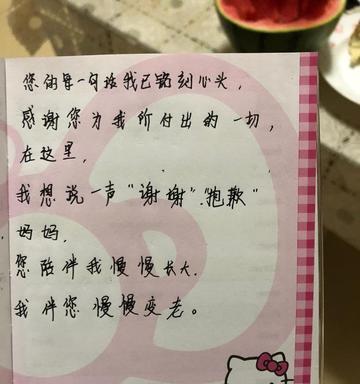 您的每一句话我已铭刻心头，
感谢您为我所付出的一切，
在这里，
我想说一声“谢谢”“抱歉”
妈妈，
您陪伴我慢慢长大，
我伴您慢慢变老。